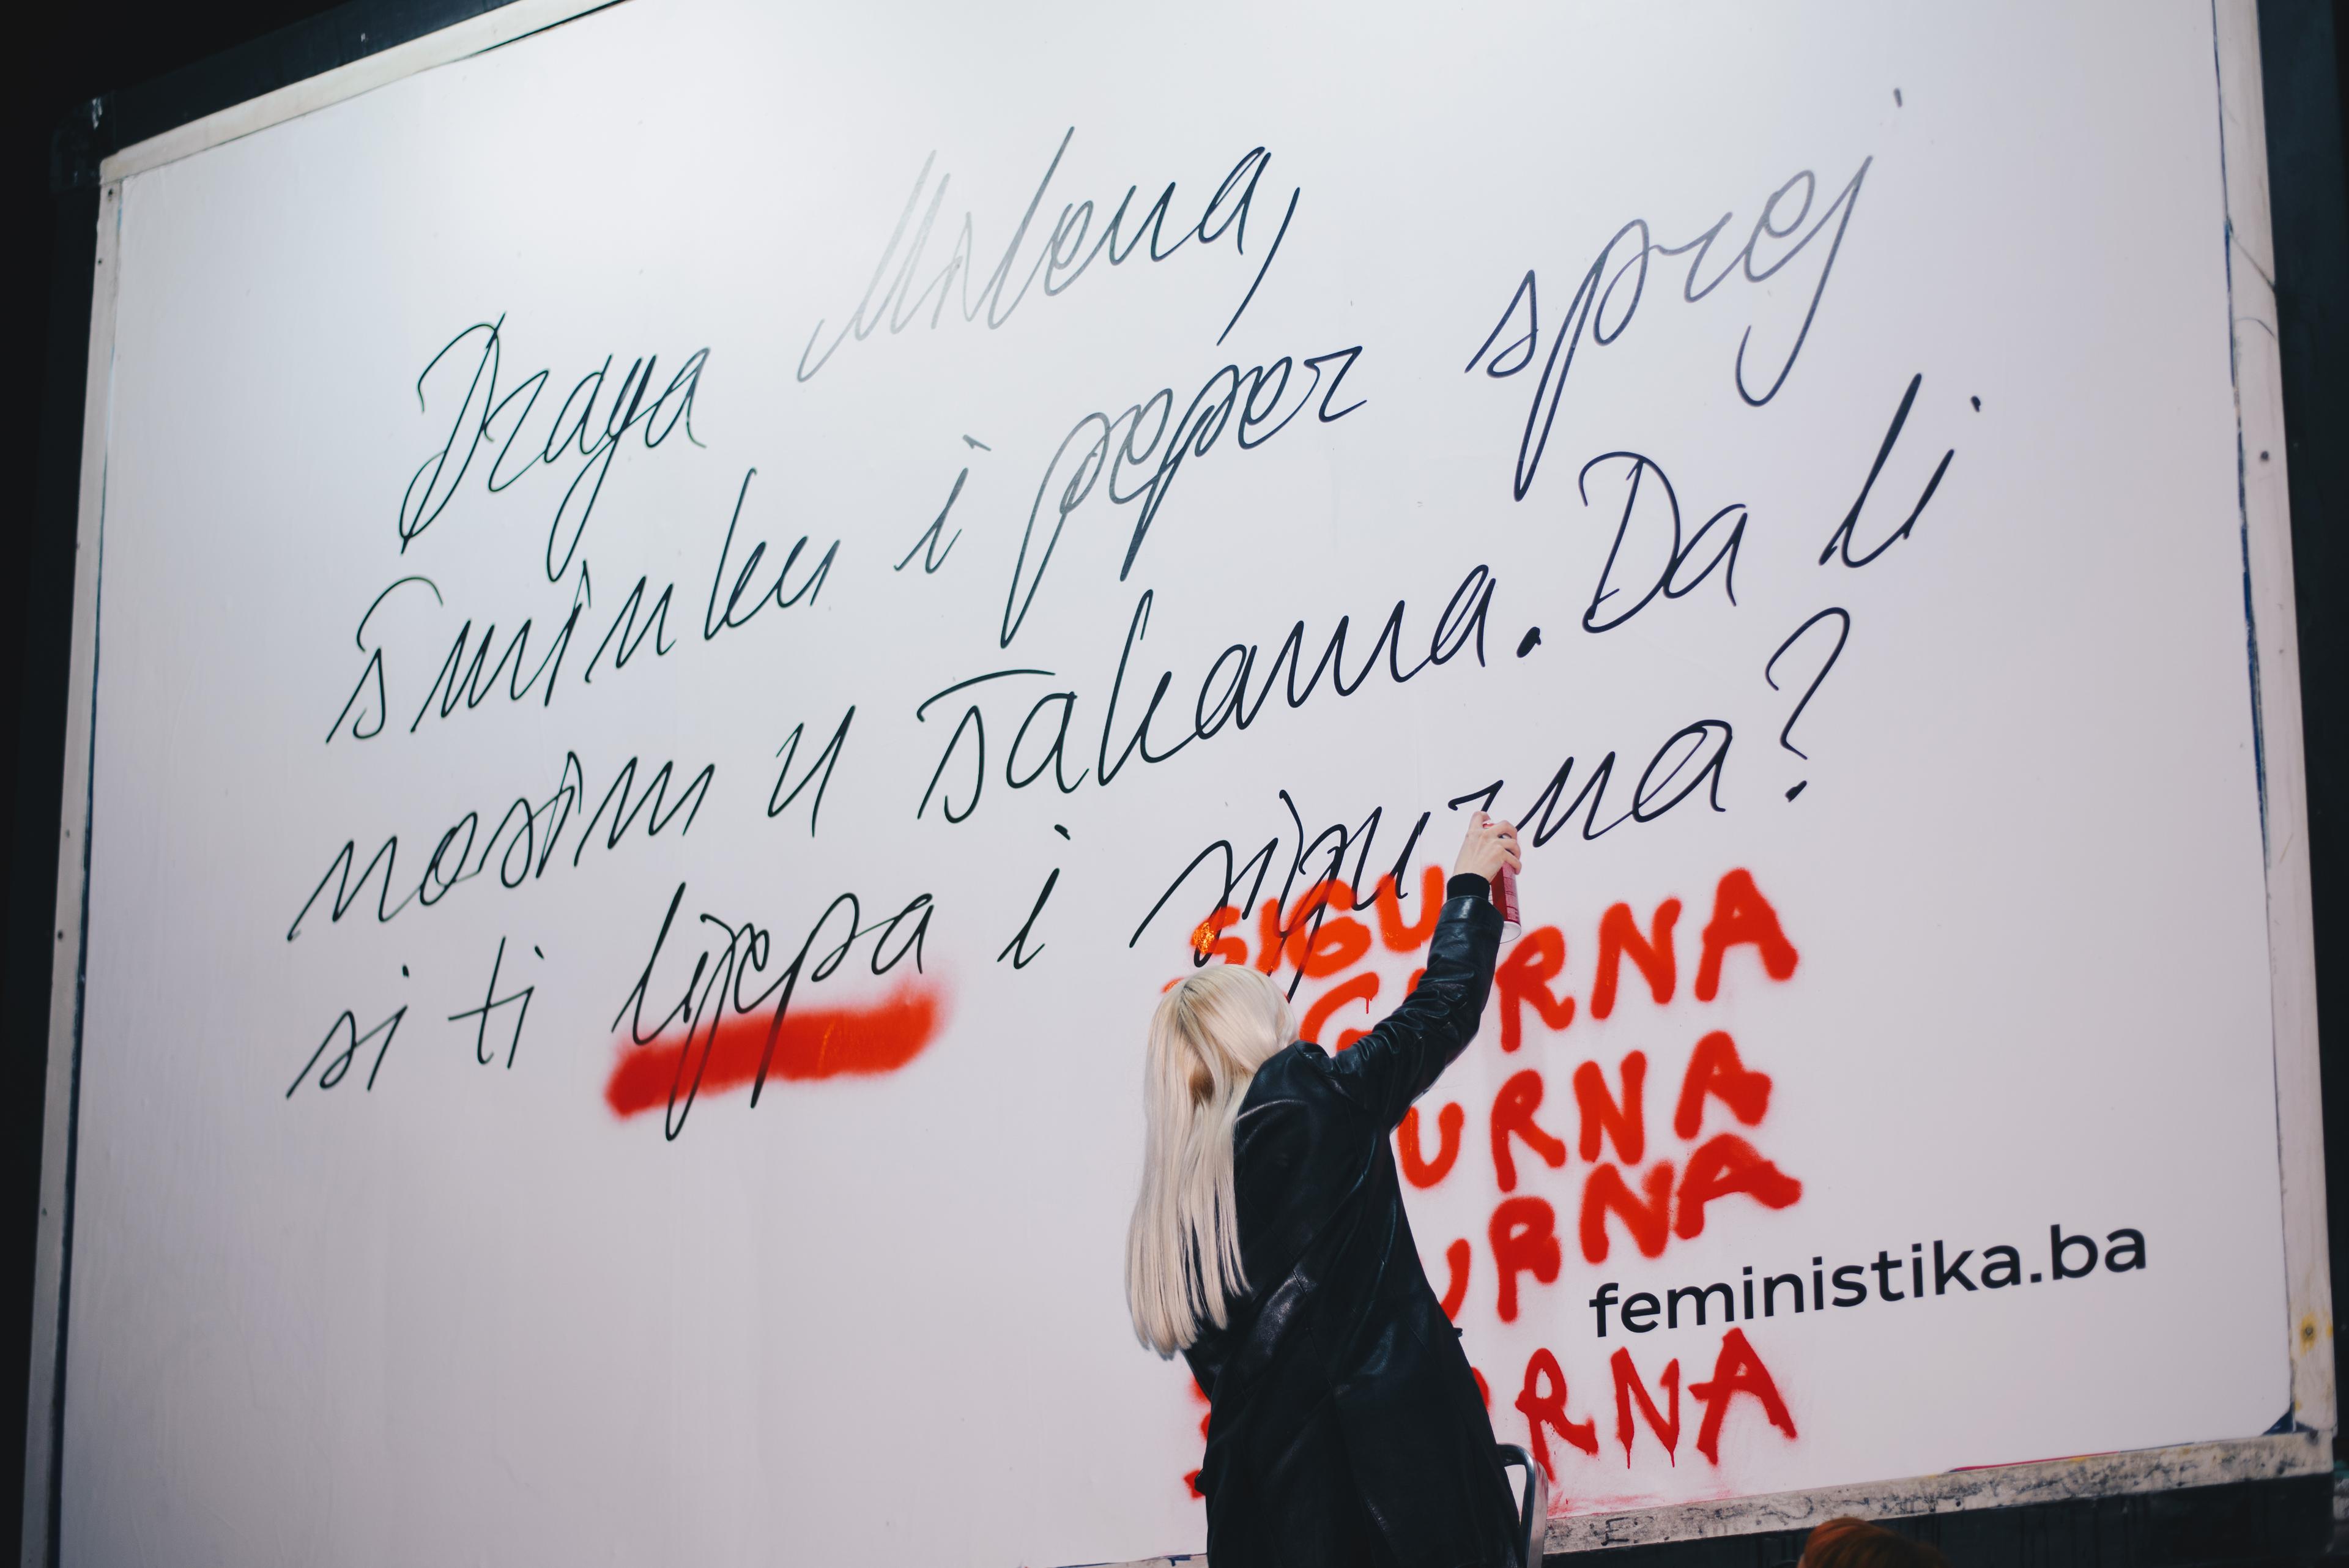 Draga Milena,
šminku i peper sprej
nosim u šakama. Da li
si ti lijepa i sigurna?
SIGU
G RNA
URNA
URNA
feministika.ba
RNA